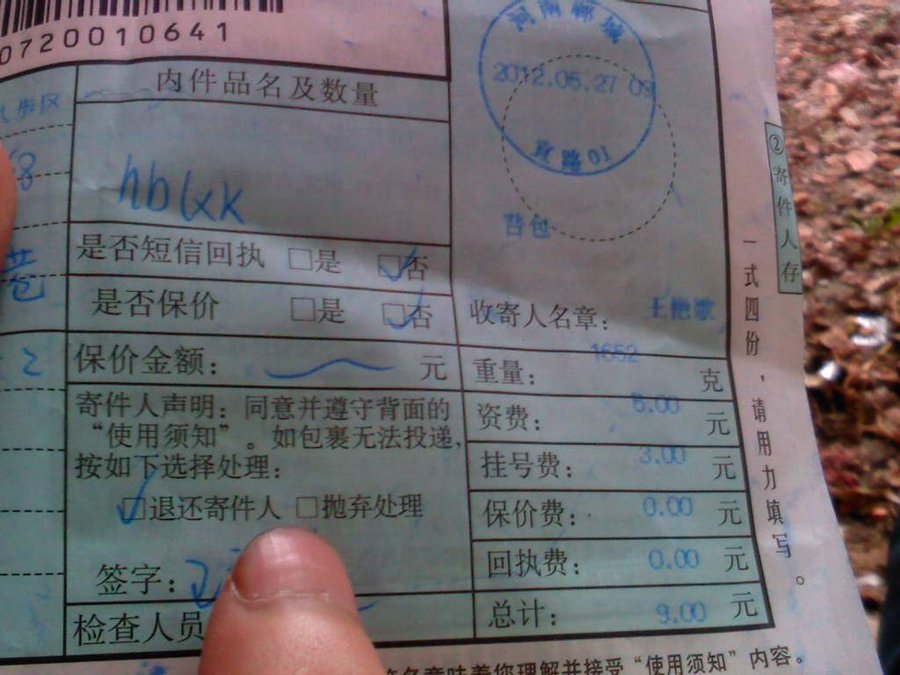 0720010641
内件品名及数量
hblxk
是否短信回执 □是 □否
是否保价 □是 □否
保价金额： 元
寄件人声明：同意并遵守背面的
“使用须知”。如包裹无法投递，
按如下选择处理：
□退还寄件人 □抛弃处理
签字：
检查人员
河南郸城
2012.05.27 09
收寄人名章：
重量： 1652 克
资费： 元
挂号费： 3.00 元
保价费： 0.00 元
回执费： 0.00 元
总计： 9.00 元
②寄件人存
一式四份，请用力填写。
名意味着您理解并接受“使用须知”内容。
八步区
巷